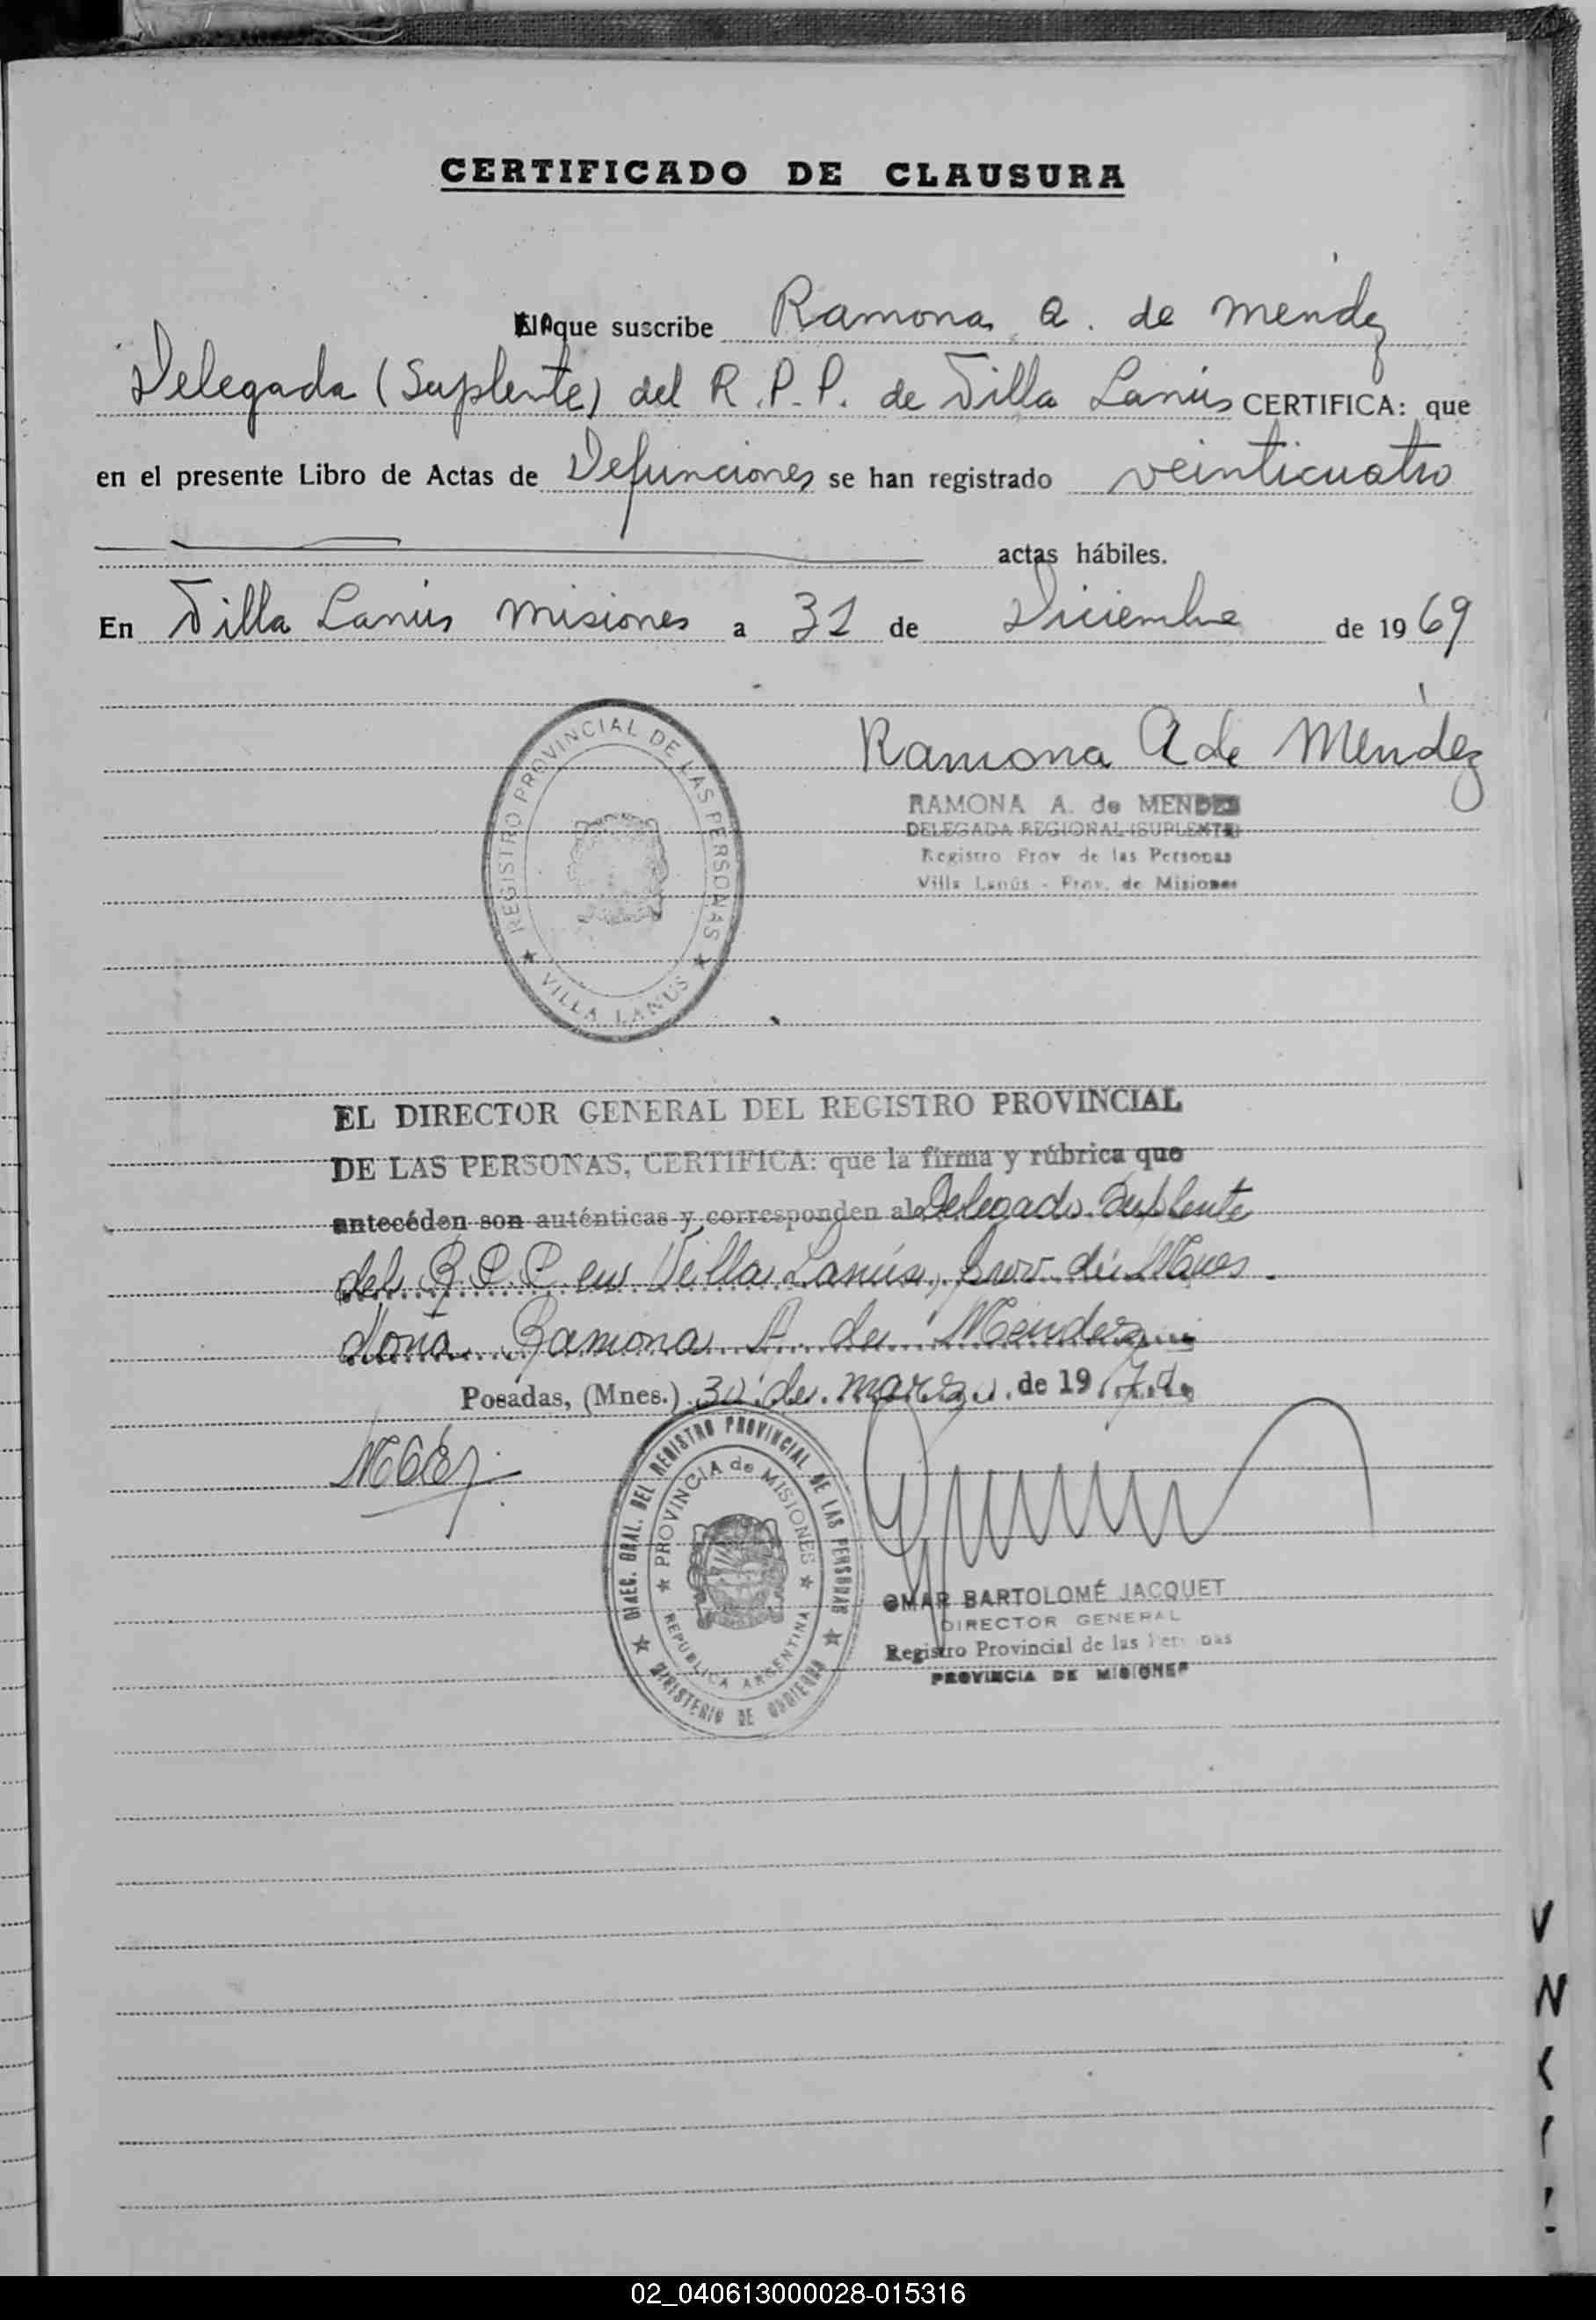 CERTIFICADO DE CLAUSURA
que suscribe Ramona A. de Mendez
Delegada (Suplente) del R.P.P. de Villa Lanús CERTIFICA: que
en el presente Libro de Actas de Defunciones se han registrado veinticuatro
actas hábiles.
En Villa Lanús Misiones a 31 de Diciembre de 1969
Ramona A de Méndez
RAMONA A. de MENDEZ
DELEGADA REGIONAL (SUPLENTE)
Registro Prov de las Personas
Villa Lanús - Prov. de Misiones
REGISTRO PROVINCIAL DE LAS PERSONAS
VILLA LANUS
EL DIRECTOR GENERAL DEL REGISTRO PROVINCIAL
DE LAS PERSONAS, CERTIFICA: que la firma y rúbrica que
antecéden son auténticas y corresponden a la Delegada Suplente
del R.P.P. en Villa Lanús, Prov. de Mnes.
doña Ramona A. de Méndez
Posadas, (Mnes.) 30 de marzo de 1970
DIREC. GRAL. DEL REGISTRO PROVINCIAL DE LAS PERSONAS
PROVINCIA de MISIONES
REPUBLICA ARGENTINA
MINISTERIO DE GOBIERNO
OMAR BARTOLOMÉ JACQUET
DIRECTOR GENERAL
Registro Provincial de las Personas
PROVINCIA DE MISIONES
02_040613000028-015316